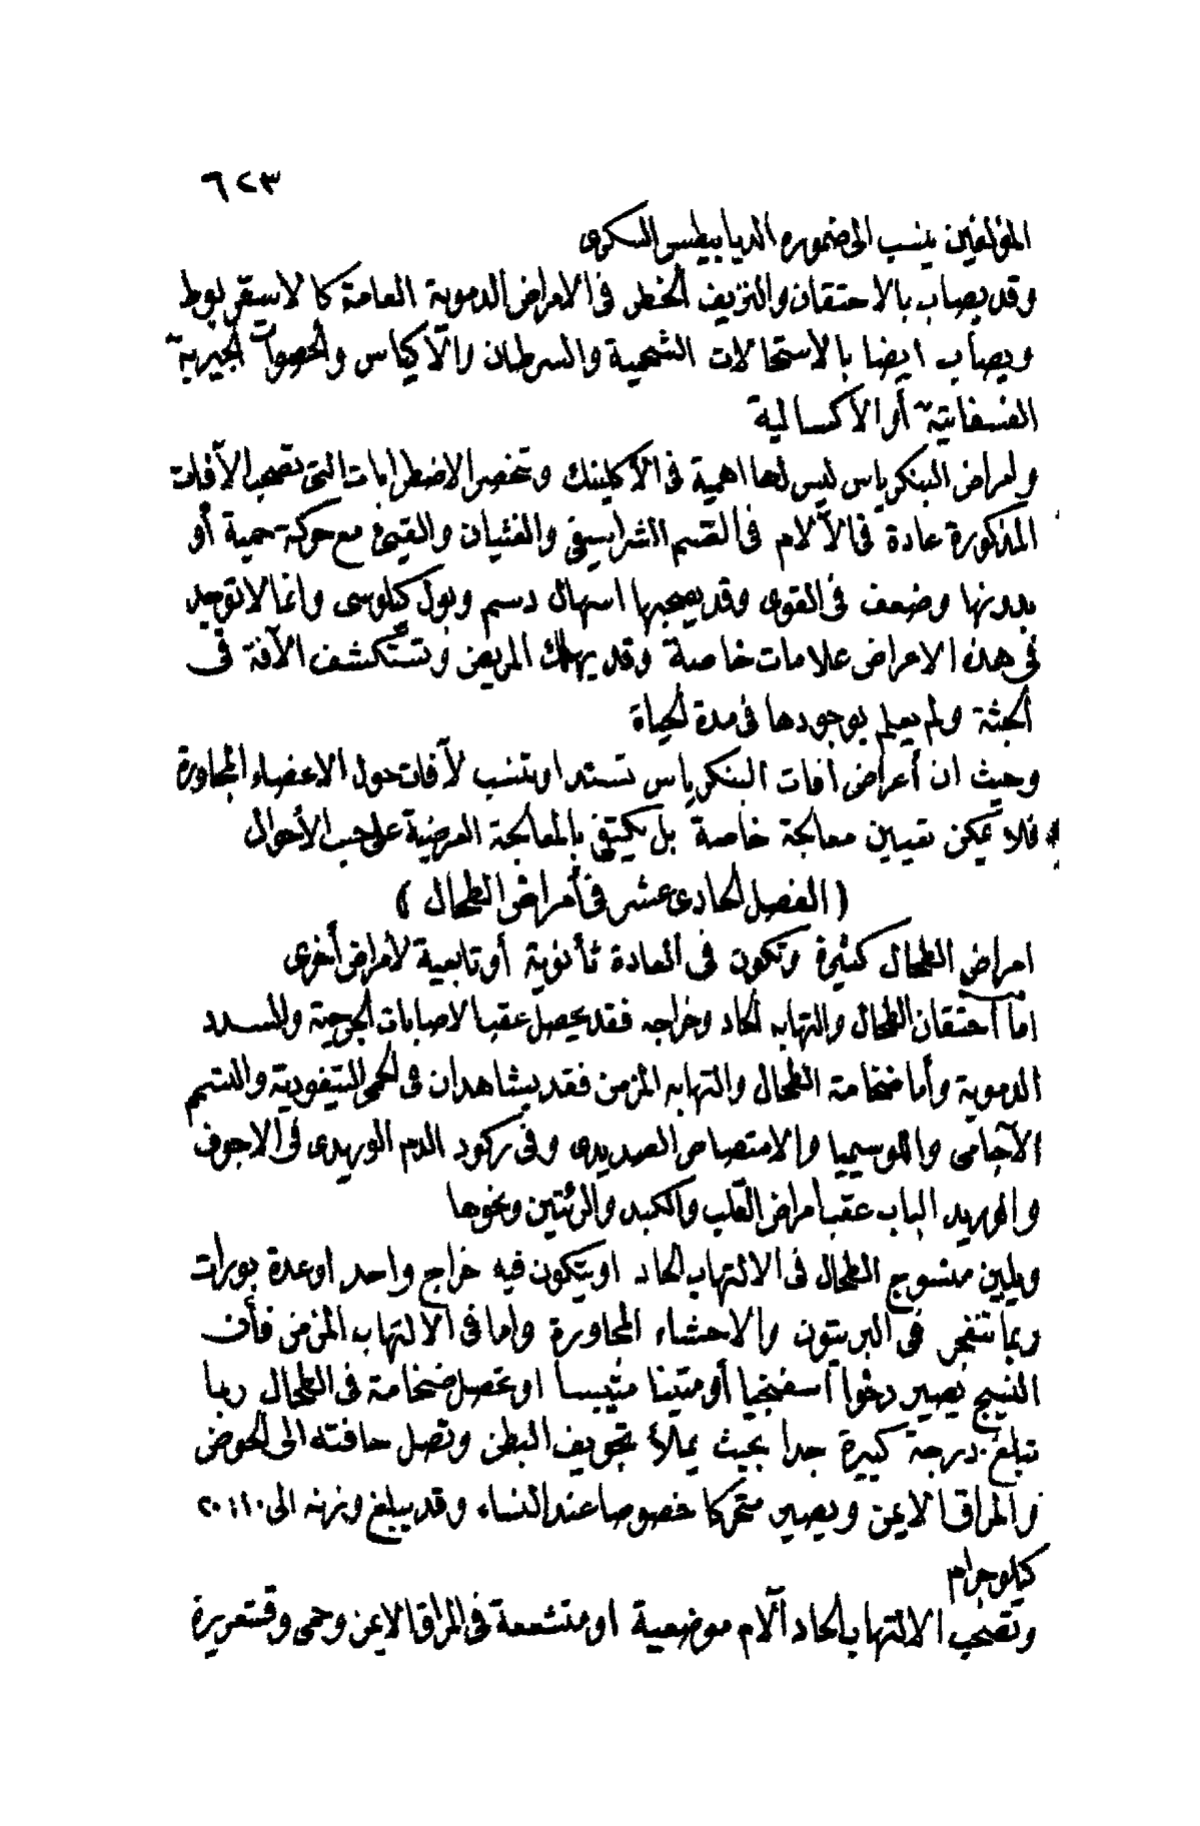 ٦٢٣
المؤلفين ينسب الى ضموره الديابيطس السكرى
وقد يصاب بالاحتقان والنزيف الخطر فى الامراض الدموية العامة كالاسقربوط
ويصاب ايضا بالاستحالات الشحمية والسرطان والأكياس والحصوات الجيرية
الفسفاتية أو الاكسالية
ولمراض البنكرياس ليس لها اهمية فى الأكلينك وتنحصر الاضطرابات التى تصحب الآفات
المذكورة عادة فى الآلام فى القسم الشراسيفى والغثيان والقيئ مع حركة حمية أو
بدونها وضعف فى القوى وقد يصحبها اسهال دسم وبول كيلوسى وانما لا توجد
فى هذه الامراض علامات خاصة وقد يهلك المريض وتستكشف الآفة فى
الجثة ولم يعلم بوجودها فى مدة الحياة
وحيث ان أعراض آفات البنكرياس تستد او تنسب لآفات حول الاعضاء المجاورة
فلا يمكن تعيين معالجة خاصة بل يكتفى بالمعالجة العرضية على حسب الأحوال
(الفصل الحادى عشر فى أمراض الطحال)
امراض الطحال كثيرة وتكون فى العادة ثأنوية أو تابعية لأمراض أخرى
اما احتقان الطحال والتهابه الحاد وخراجه فقد يحصل عقب الاصابات الجرحية والسدد
الدموية وأما ضخامة الطحال والتهابه المزمن فقد يشاهدان فى الحمى التيفودية والتسمم
الآجامى واللوسيميا والامتصاص الصديدى وفى ركود الدم الوريدى فى الاجوف
والوريد الباب عقب أمراض القلب والكبد والرئتين ونحوها
ويلين منسوج الطحال فى الالتهاب الحاد او يتكون فيه خراج واحد او عدة بورات
ربما تنفجر فى البريتون والاحشاء المجاورة واما فى الالتهاب المزمن فأن
النسيج يصير رخوا اسفنجيا أو متينا متيبسا او تحصل ضخامة فى الطحال ربما
تبلغ درجة كبيرة جدا بحيث يملأ تجويف البطن وتصل حافته الى الحوض
والمراق الايمن ويصير متحركا خصوصا عند النساء وقد يبلغ وزنه الى ١٠ : ٢٠
كيلوجرام
وتصحب الالتهاب الحاد آلام موضعية او متشععة فى المراق الايمن وحمى وقشعريرة